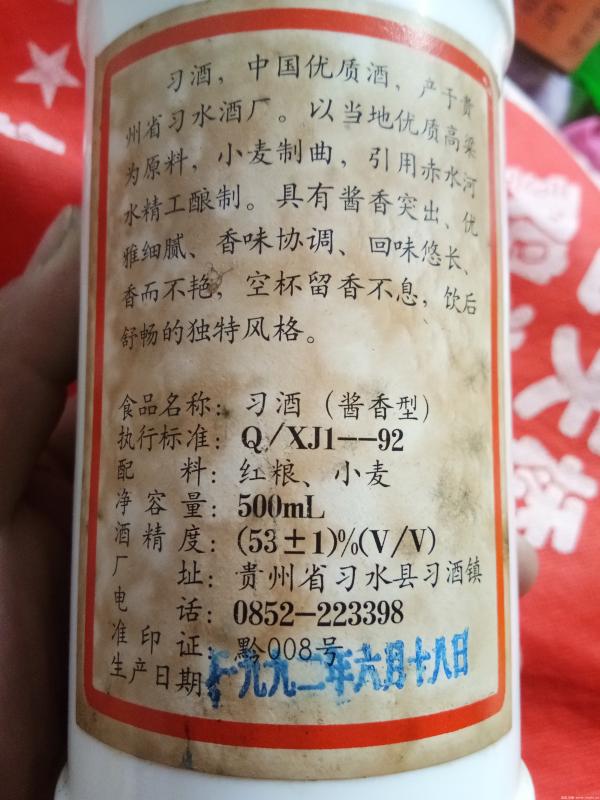 习酒，中国优质酒，产于贵
州省习水酒厂。以当地优质高梁
为原料，小麦制曲，引用赤水河
水精工酿制。具有酱香突出、优
雅细腻、香味协调、回味悠长、
香而不艳，空杯留香不息，饮后
舒畅的独特风格。
食品名称：习酒（酱香型）
执行标准：Q/XJ1--92
配料：红粮、小麦
净容量：500mL
酒精度：(53±1)%(V/V)
厂址：贵州省习水县习酒镇
电话：0852-223398
准印证：黔008号
生产日期：一九九二年六月十八日